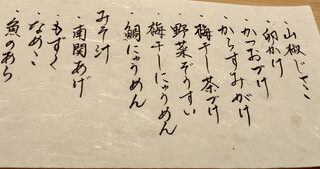 ・山椒じゃこ
・卵かけ
・かつおづけ
・からすみがけ
・梅干し茶づけ
・野菜ぞうすい
・梅干しにゅうめん
・鯛にゅうめん
みそ汁
・南関あげ
・もずく
・なめこ
・魚のあら